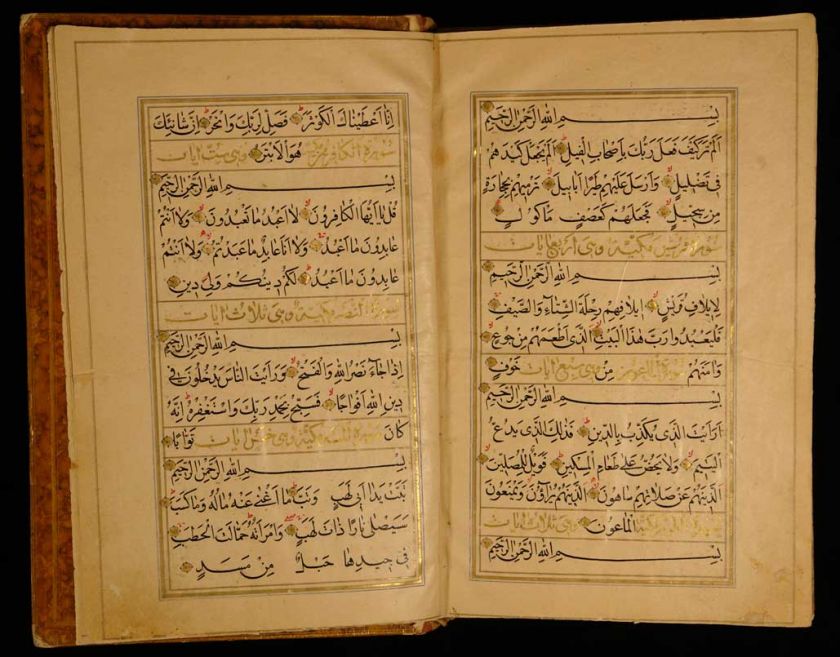 بِسْمِ اللهِ الرَّحْمٰنِ الرَّحِيمِ
اَلَمْ تَرَ كَيْفَ فَعَلَ رَبُّكَ بِاَصْحَابِ الْفِيلِ اَلَمْ يَجْعَلْ كَيْدَهُمْ
فِي تَضْلِيلٍ وَاَرْسَلَ عَلَيْهِمْ طَيْرًا اَبَابِيلَ تَرْمِيهِمْ بِحِجَارَةٍ
مِنْ سِجِّيلٍ فَجَعَلَهُمْ كَعَصْفٍ مَأْكُولٍ
سورة قريش مكية وهى اربع ايات
بِسْمِ اللهِ الرَّحْمٰنِ الرَّحِيمِ
لِاِيلَافِ قُرَيْشٍ اِيلَافِهِمْ رِحْلَةَ الشِّتَاءِ وَالصَّيْفِ
فَلْيَعْبُدُوا رَبَّ هٰذَا الْبَيْتِ الَّذِي اَطْعَمَهُمْ مِنْ جُوعٍ
وَاٰمَنَهُمْ سورة الماعون مِنْ وهى سبع ايات خَوْفٍ
بِسْمِ اللهِ الرَّحْمٰنِ الرَّحِيمِ
اَرَاَيْتَ الَّذِي يُكَذِّبُ بِالدِّينِ فَذٰلِكَ الَّذِي يَدُعُّ
الْيَتِيمَ وَلَا يَحُضُّ عَلَى طَعَامِ الْمِسْكِينِ فَوَيْلٌ لِلْمُصَلِّينَ
الَّذِينَ هُمْ عَنْ صَلَاتِهِمْ سَاهُونَ الَّذِينَ هُمْ يُرَاؤُنَ وَيَمْنَعُونَ
سورة مكية الْمَاعُونَ وهى ثلاث ايات
بِسْمِ اللهِ الرَّحْمٰنِ الرَّحِيمِ
اِنَّا اَعْطَيْنَاكَ الْكَوْثَرَ فَصَلِّ لِرَبِّكَ وَانْحَرْ اِنَّ شَانِئَكَ
سورة الكافرون هُوَ الْاَبْتَرُ وهى ست ايات
بِسْمِ اللهِ الرَّحْمٰنِ الرَّحِيمِ
قُلْ يَا اَيُّهَا الْكَافِرُونَ لَا اَعْبُدُ مَا تَعْبُدُونَ وَلَا اَنْتُمْ
عَابِدُونَ مَا اَعْبُدُ وَلَا اَنَا عَابِدٌ مَا عَبَدْتُمْ وَلَا اَنْتُمْ
عَابِدُونَ مَا اَعْبُدُ لَكُمْ دِينُكُمْ وَلِيَ دِينِ
سورة النصر مكية وهى ثلاث ايات
بِسْمِ اللهِ الرَّحْمٰنِ الرَّحِيمِ
اِذَا جَاءَ نَصْرُ اللهِ وَالْفَتْحُ وَرَاَيْتَ النَّاسَ يَدْخُلُونَ فِي
دِينِ اللهِ اَفْوَاجًا فَسَبِّحْ بِحَمْدِ رَبِّكَ وَاسْتَغْفِرْهُ اِنَّهُ
كَانَ سورة مكية وهى خمس ايات تَوَّابًا
بِسْمِ اللهِ الرَّحْمٰنِ الرَّحِيمِ
تَبَّتْ يَدَا اَبِي لَهَبٍ وَتَبَّ مَا اَغْنٰى عَنْهُ مَالُهُ وَمَا كَسَبَ
سَيَصْلٰى نَارًا ذَاتَ لَهَبٍ وَامْرَاَتُهُ حَمَّالَةَ الْحَطَبِ
فِي جِيدِهَا حَبْلٌ مِنْ مَسَدٍ